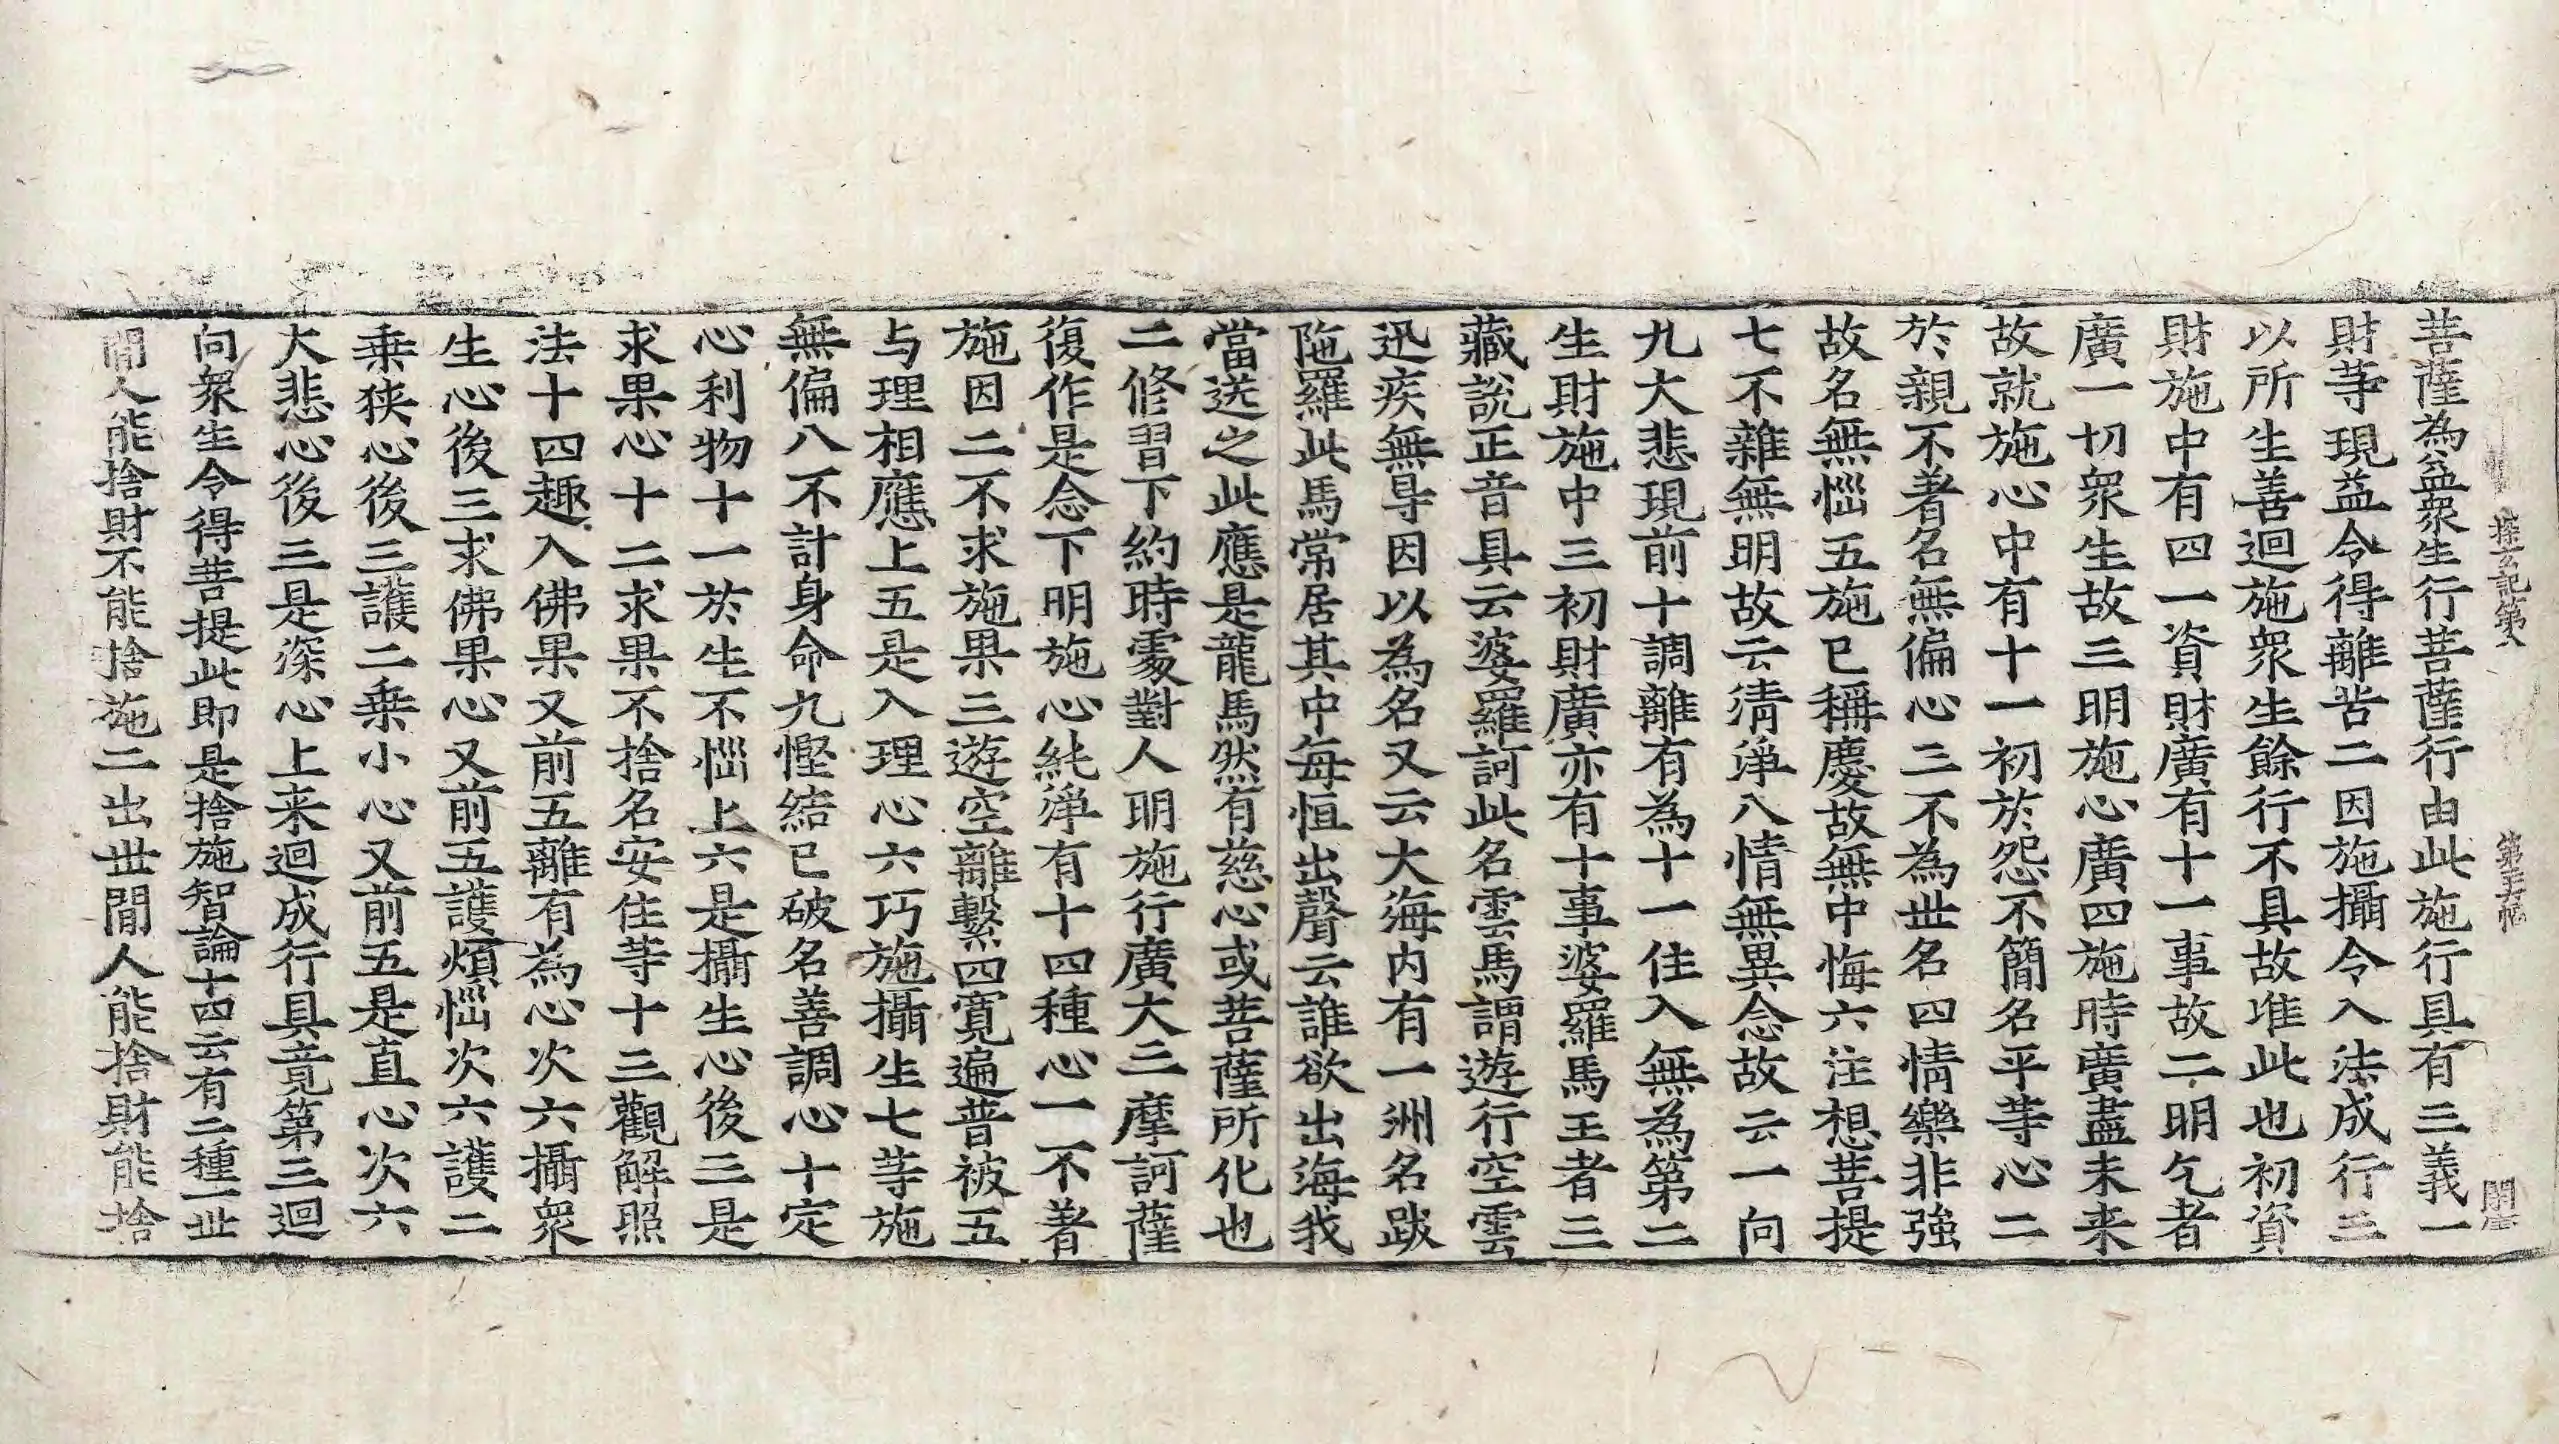 探玄記第八 第五十幅 開
菩薩為益衆生行菩薩行由此施行具有三義一
財等現益令得離苦二因施攝令入法成行三
以所生善迴施衆生餘行不具故唯此也初資
財施中有四一資財廣有十一事故二明乞者
廣一切衆生故三明施心廣四施時廣盡未来
故就施心中有十一初於怨不簡名平等心二
於親不著名無偏心三不為世名四情樂非強
故名無惱五施已稱慶故無中悔六注想菩提
七不雜無明故云清淨八情無異念故云一向
九大悲現前十調離有為十一住入無為第二
生財施中三初財廣亦有十事婆羅馬王者三
藏說正音具云婆羅訶此名雲馬謂遊行空雲
迅疾無㝵因以為名又云大海内有一洲名跋
陁羅此馬常居其中每恒出聲云誰欲出海我
當送之此應是龍馬然有慈心或菩薩所化也
二修習下約時處對人明施行廣大三摩訶薩
復作是念下明施心純淨有十四種心一不著
施因二不求施果三遊空離繫四寬遍普被五
与理相應上五是入理心六巧施攝生七等施
無偏八不計身命九慳結已破名善調心十定
心利物十一於生不惱上六是攝生心後三是
求果心十二求果不捨名安住等十三觀解照
法十四趣入佛果又前五離有為心次六攝衆
生心後三求佛果心又前五護煩惱次六護二
乗狹心後三護二乗小心又前五是直心次六
大悲心後三是深心上来迴成行具竟第三迴
向衆生令得菩提此即是捨施智論十四云有二種一世
閒人能捨財不能捨施二出世閒人能捨財能捨